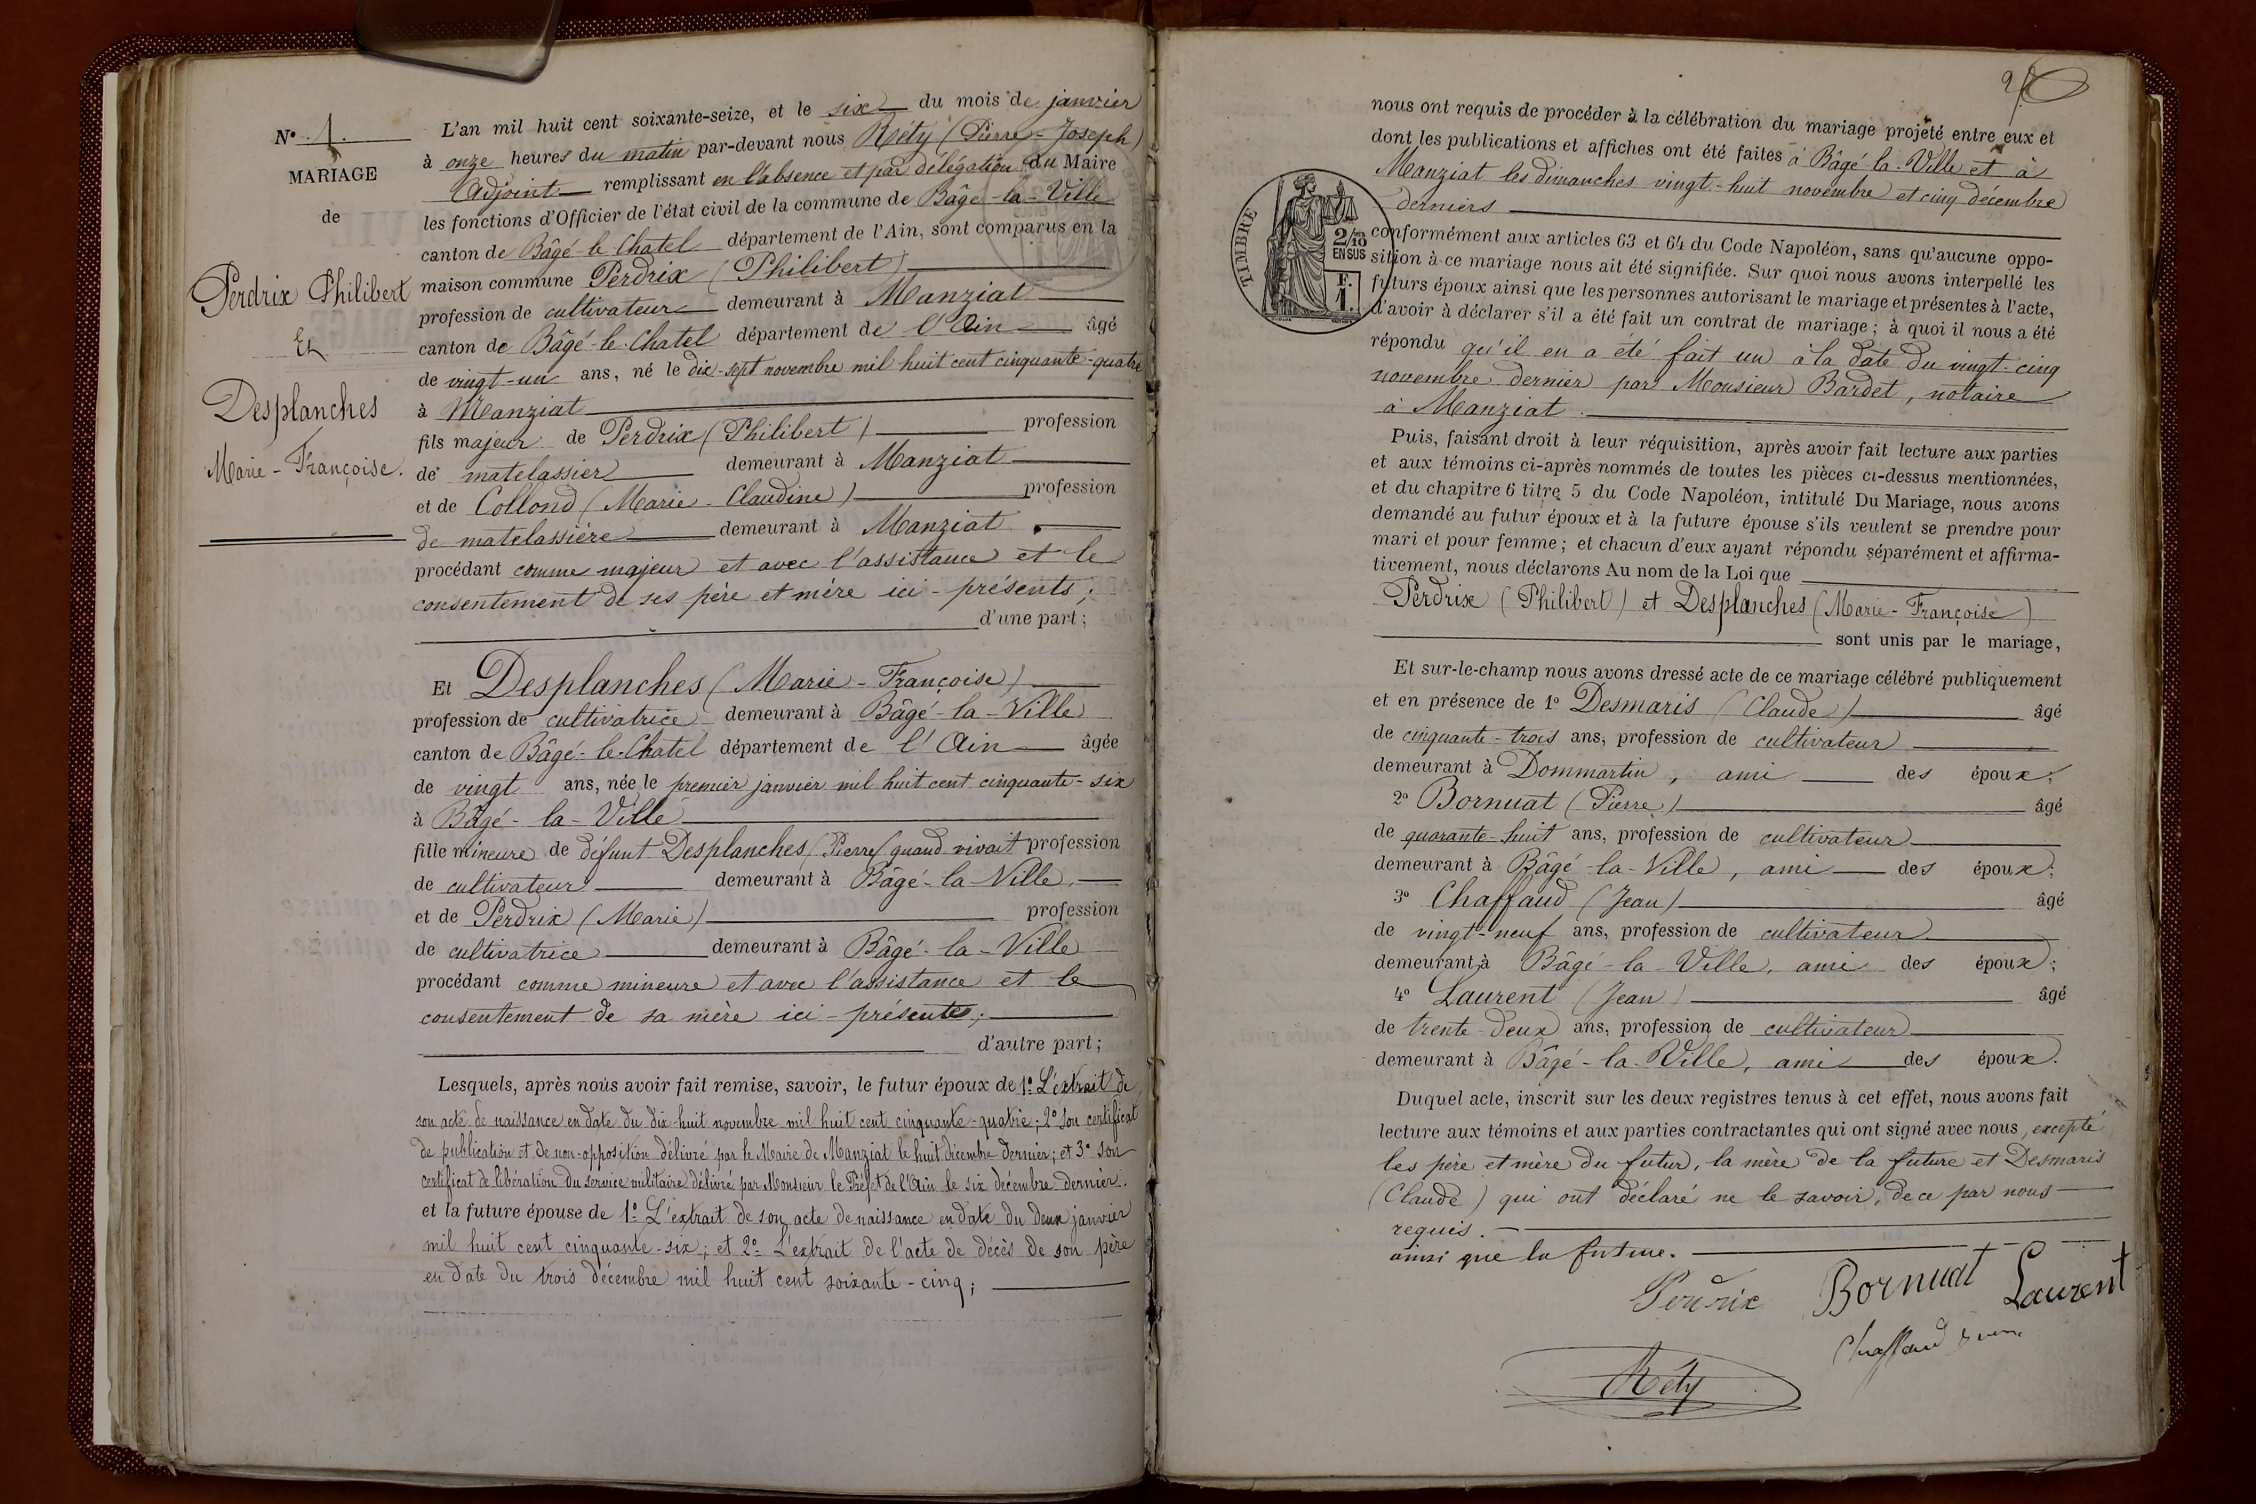 N° 1.
MARIAGE
de
Perdrix Philibert
Et
Desplanches
Marie-Françoise.
L'an mil huit cent soixante-seize, et le six du mois de janvier
à onze heures du matin par-devant nous Réty (Pierre-Joseph)
Adjoint remplissant en l'absence et par délégation du Maire
les fonctions d'Officier de l'état civil de la commune de Bâgé-la-Ville
canton de Bâgé-le-Chatel département de l'Ain, sont comparus en la
maison commune Perdrix (Philibert)
profession de cultivateur demeurant à Manziat
canton de Bâgé-le-Chatel département de l'Ain âgé
de vingt-un ans, né le dix-sept novembre mil huit cent cinquante-quatre
à Manziat
fils majeur de Perdrix (Philibert) profession
de matelassier demeurant à Manziat
et de Collond (Marie-Claudine) profession
de matelassière demeurant à Manziat
procédant comme majeur et avec l'assistance et le
consentement de ses père et mère ici-présents;
d'une part;
Et Desplanches (Marie-Françoise)
profession de cultivatrice demeurant à Bâgé-la-Ville
canton de Bâgé-le-Chatel département de l'Ain âgée
de vingt ans, née le premier janvier mil huit cent cinquante-six
à Bâgé-la-Ville
fille mineure de défunt Desplanches (Pierre) quand vivait profession
de cultivateur demeurant à Bâgé-la-Ville
et de Perdrix (Marie) profession
de cultivatrice demeurant à Bâgé-la-Ville
procédant comme mineure et avec l'assistance et le
consentement de sa mère ici-présente;
d'autre part;
Lesquels, après nous avoir fait remise, savoir, le futur époux de 1° L'extrait de
son acte de naissance en date du dix-huit novembre mil huit cent cinquante-quatre; 2° son certificat
de publication et de non-opposition délivré par le Maire de Manziat le huit décembre dernier; et 3° son
certificat de libération du service militaire délivré par Monsieur le Préfet de l'Ain le six décembre dernier.
et la future épouse de 1° L'extrait de son acte de naissance en date du deux janvier
mil huit cent cinquante-six; et 2° L'extrait de l'acte de décès de son père
en date du trois décembre mil huit cent soixante-cinq;
TIMBRE
2/10
EN SUS
F.
1.
nous ont requis de procéder à la célébration du mariage projeté entre eux et
dont les publications et affiches ont été faites à Bâgé-la-Ville et à
Manziat les dimanches vingt-huit novembre et cinq décembre
derniers
conformément aux articles 63 et 64 du Code Napoléon, sans qu'aucune oppo-
sition à ce mariage nous ait été signifiée. Sur quoi nous avons interpellé les
futurs époux ainsi que les personnes autorisant le mariage et présentes à l'acte,
d'avoir à déclarer s'il a été fait un contrat de mariage; à quoi il nous a été
répondu qu'il en a été fait un à la date du vingt-cinq
novembre dernier par Monsieur Bardet, notaire
à Manziat.
Puis, faisant droit à leur réquisition, après avoir fait lecture aux parties
et aux témoins ci-après nommés de toutes les pièces ci-dessus mentionnées,
et du chapitre 6 titre 5 du Code Napoléon, intitulé Du Mariage, nous avons
demandé au futur époux et à la future épouse s'ils veulent se prendre pour
mari et pour femme; et chacun d'eux ayant répondu séparément et affirma-
tivement, nous déclarons Au nom de la Loi que
Perdrix (Philibert) et Desplanches (Marie-Françoise)
sont unis par le mariage,
Et sur-le-champ nous avons dressé acte de ce mariage célébré publiquement
et en présence de 1° Desmaris (Claude) âgé
de cinquante-trois ans, profession de cultivateur
demeurant à Dommartin, ami des époux;
2° Bornuat (Pierre) âgé
de quarante-huit ans, profession de cultivateur
demeurant à Bâgé-la-Ville, ami des époux;
3° Chaffaud (Jean) âgé
de vingt-neuf ans, profession de cultivateur
demeurant à Bâgé-la-Ville, ami des époux;
4° Laurent (Jean) âgé
de trente-deux ans, profession de cultivateur
demeurant à Bâgé-la-Ville, ami des époux.
Duquel acte, inscrit sur les deux registres tenus à cet effet, nous avons fait
lecture aux témoins et aux parties contractantes qui ont signé avec nous, excepté
les père et mère du futur, la mère de la future et Desmaris
(Claude) qui ont déclaré ne le savoir, de ce par nous
requis.
ainsi que la future.
Perdrix Bornuat Laurent
Chaffaud
Réty